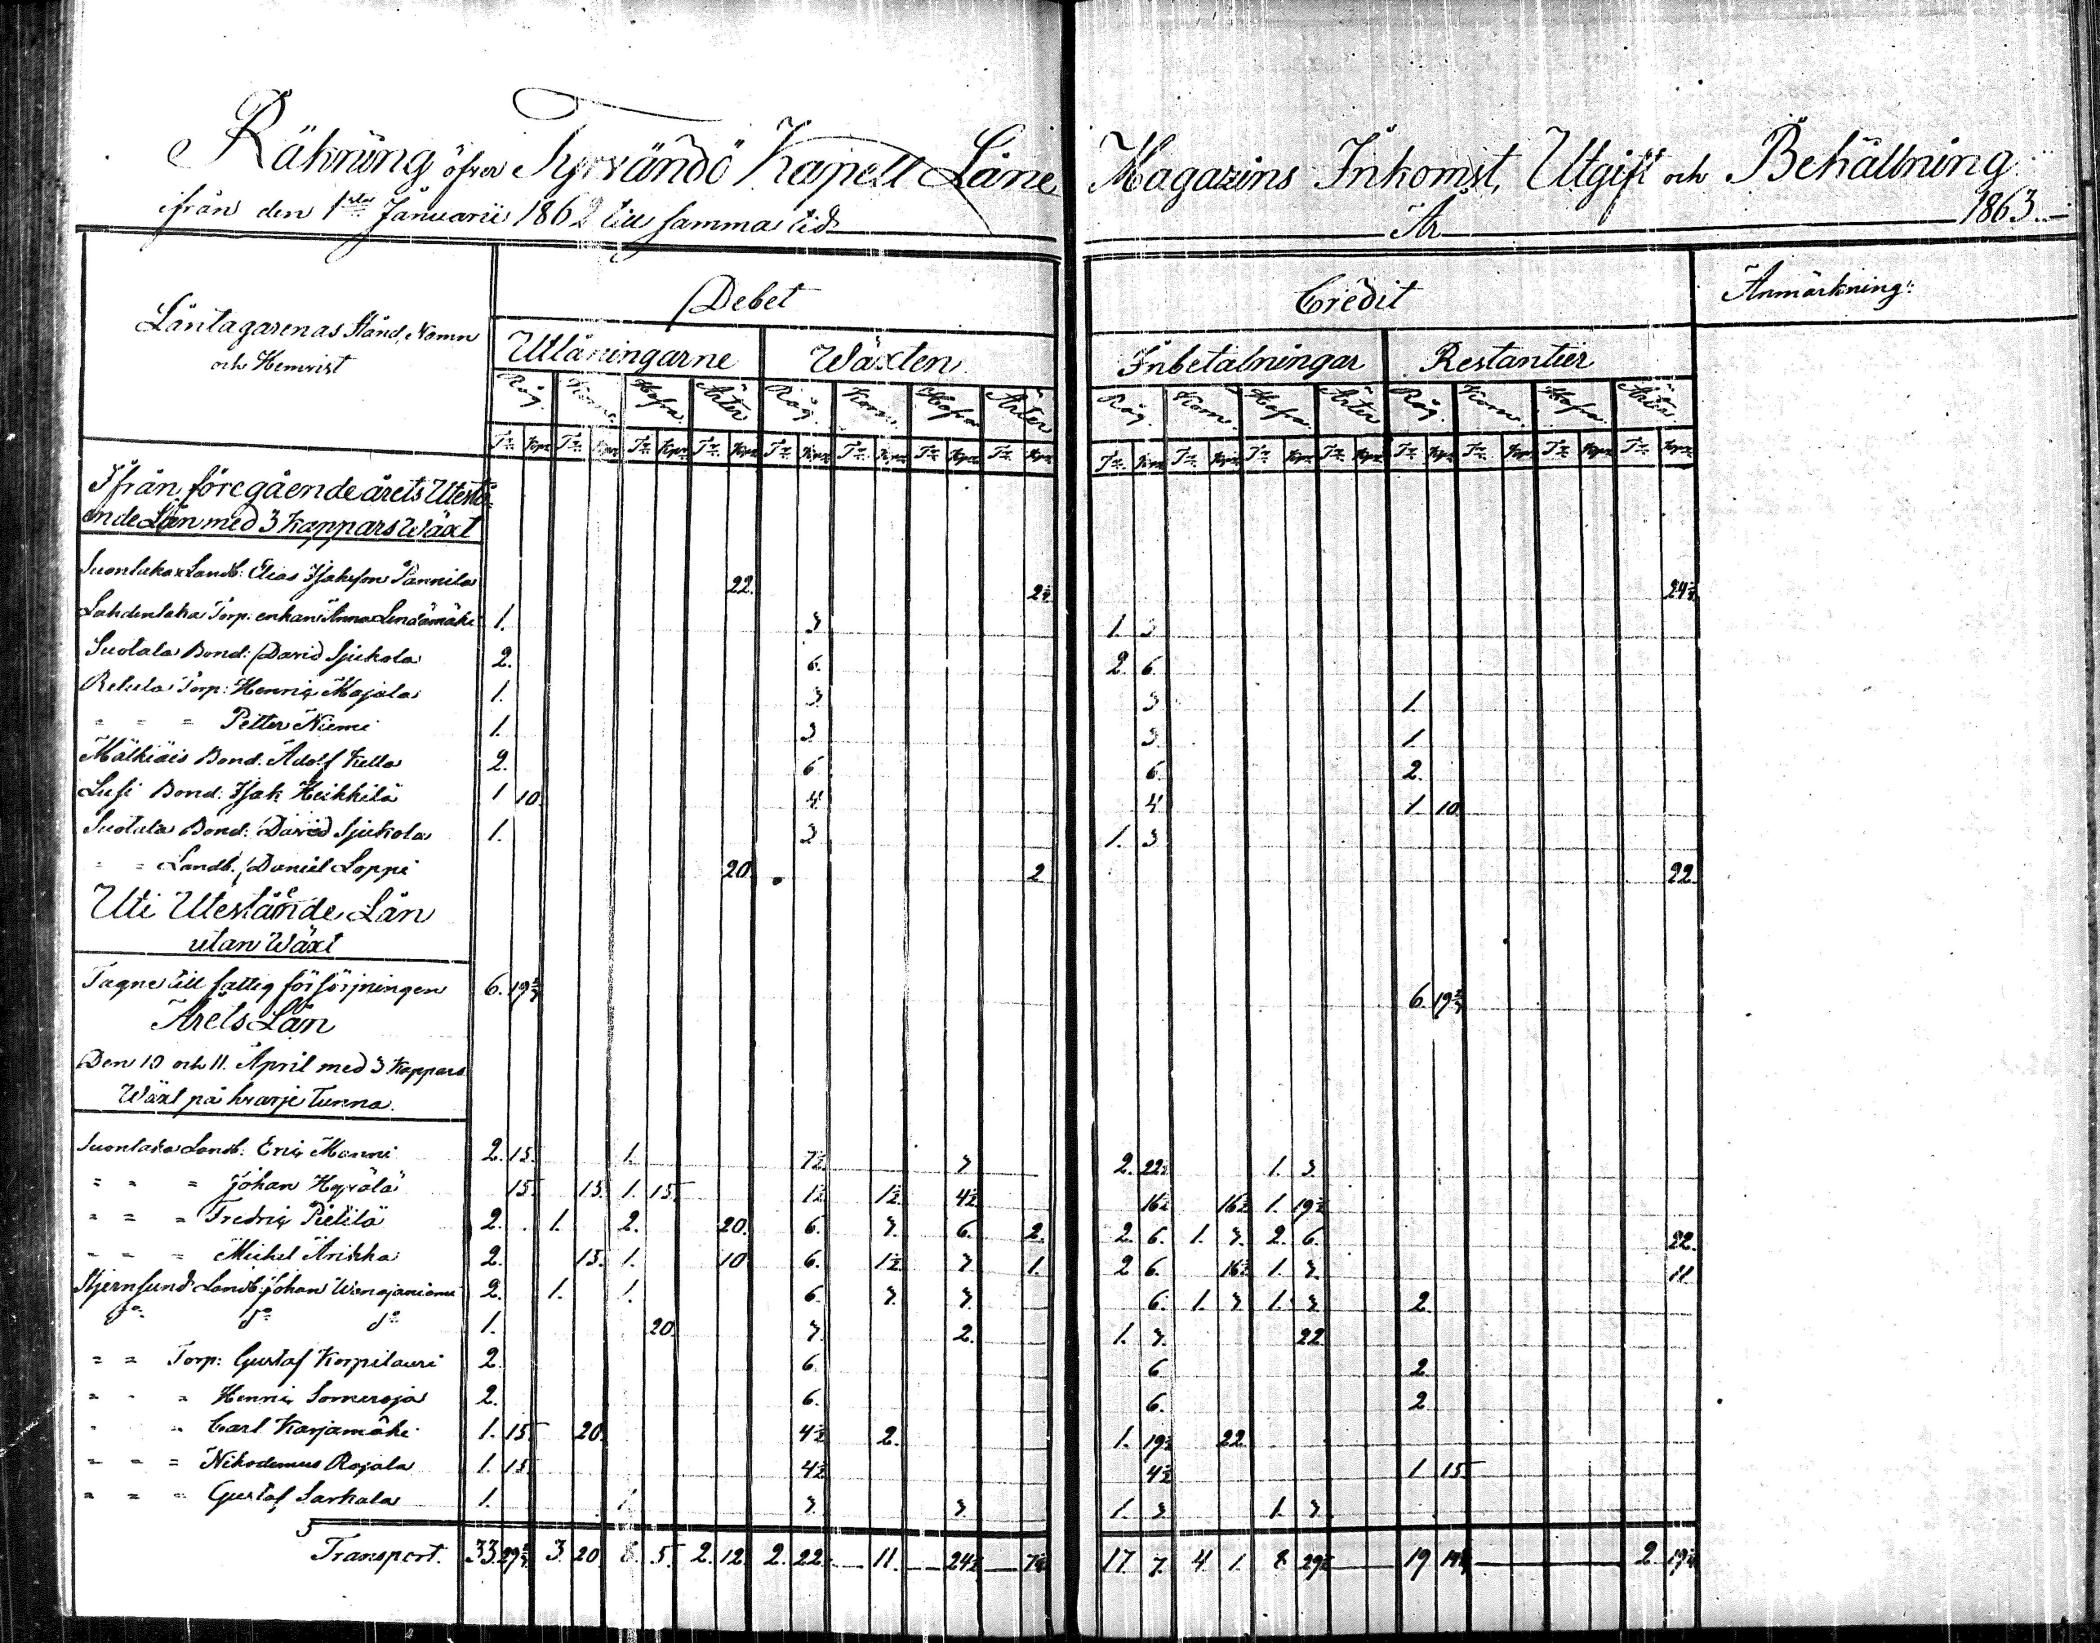 Räkning öfver Tyrvändö Kapell Låne Magazins Inkomst, Utgift och Behållning
ifrån den 1sta Januarii 1862 till samma tid År 1863.
Låntagarenas Stånd, Namn och Hemvist
Debet
Credit
Anmärkning:
Utlåningarne Wäxten Inbetalningar Restantier
Råg. Korn. Hafra Ärter Råg. Korn. Hafra Ärter Råg. Korn. Hafra Ärter Råg. Korn. Hafra Ärter
Tr. Kpr. Tr. Kpr. Tr. Kpr. Tr. Kpr. Tr. Kpr. Tr. Kpr. Tr. Kpr. Tr. Kpr. Tr. Kpr. Tr. Kpr. Tr. Kpr. Tr. Kpr. Tr. Kpr. Tr. Kpr. Tr. Kpr. Tr. Kpr.
Ifrån föregående årets Utestå-
ende Lån med 3 Kappars Wäxt
Suontaka Landb: Elias Isaksson Pannila 22.
Lahdentaka Torp. enkan Anna 1. 3 1. 3
Suotala Bond: David Sjukola 2. 6. 2. 6.
Retula Torp: Henric Majala 1. 3 3 1.
" " " Petter Niemi 1. 3 3. 1.
Mälkiäis Bond. Adolf Kello 2. 6 6. 2.
Lusi Bond. Isak Heikkilä 1 10. 4. 4. 1. 10.
Suotala Bond: David Sjukola 1. 3 1. 3
" " Landb. Daniel Loppi 20. 2 22.
Uti Utestående Lån
utan Wäxt
Tagne till fattig försörjningen 6. 6.
Årets Lån
Den 10 och 11. April med 3 Kappars
Wäxt på hvarje Tunna.
Suontaka Landb: Eric Manni 2. 15. 1. 7½ 3 2. 22½ 1. 3.
" " " Johan Hyvälä 15. 15. 1. 15. 1½ 1½ 4½ 16½ 16½ 1. 19½
" " " Fredric Pietilä 2. 1. 2. 20. 6. 3. 6. 2. 2. 6. 1. 3. 2. 6. 22.
" " " Michel Arikka 2. 15. 1. 10 6. 1½ 3 1. 2 6. 16½ 1. 3. 11
Stjernsund Landb: Johan Wanajaniemi 2. 1. 1. 6. 3. 3. 6. 1. 3 1. 3 2.
do do do 1. 20. 3. 2. 1. 3. 22
" " Torp: Gustaf Korpilauri 2. 6. 6 2
" " " Henric Someroja 2. 6. 6. 2
" " Carl Karjamäki 1. 15. 20. 4½ 2. 1. 19½ 22
" " " Nikodemus Rajala 1. 15. 4½ 4½ 1 15.
" " " Gustaf Sarkala 1. 1. 3. 3 1. 3 1. 3
Transport. 33. 3. 20. 8. 5. 2. 12. 2. 22. 11. 24½ 17. 7. 4. 1. 8. 29½ 19 2